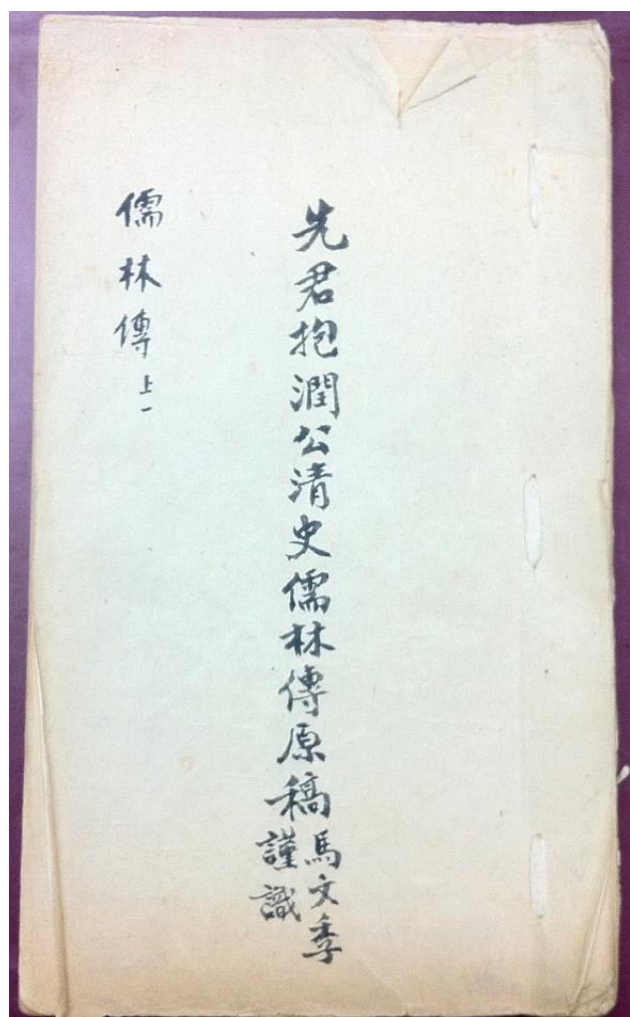 先君抱潤公清史儒林傳原稿
馬文季
謹識
儒林傳上一